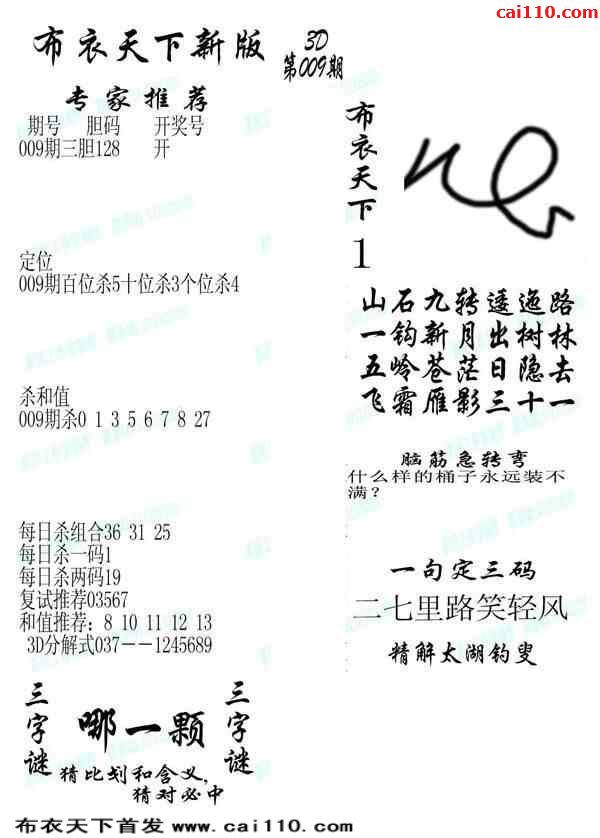 cai110.com
布衣天下新版
3D
第009期
专家推荐
期号 胆码 开奖号
009期三胆128 开
定位
009期百位杀5十位杀3个位杀4
杀和值
009期杀0 1 3 5 6 7 8 27
每日杀组合36 31 25
每日杀一码1
每日杀两码19
复试推荐03567
和值推荐：8 10 11 12 13
3D分解式037--1245689
三字谜
哪一颗
三字谜
猜比划和含义，
猜对必中
布衣天下
1
山石九转逶迤路
一钩新月出树林
五岭苍茫日隐去
飞霜雁影三十一
脑筋急转弯
什么样的桶子永远装不
满？
一句定三码
二七里路笑轻风
精解太湖钓叟
布衣天下首发 www.cai110.com